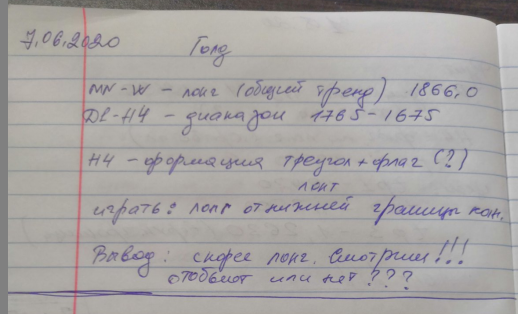 7.06.2020 Голд
MN-W - лонг (общий тренд) 1866,0
D1-H4 - диапазон 1765-1675
H4 - формация треугол + флаг (?)
лонг
играть: лонг от нижней границы кан.
Вывод: скорее лонг. Смотрим!!!
отобьют или нет???